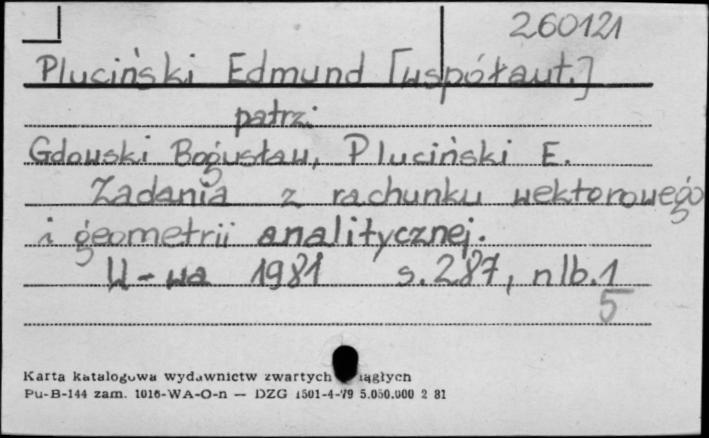 260121
Pluciński Edmund [współaut.]
patrz.
Gdowski Bogusław, Pluciński E.
Zadania z rachunku wektorowego
i geometrii analitycznej.
W-wa 1981 s. 287, nlb. 1
5
Karta katalogowa wydawnictw zwartych
Pu-B-144 zam. 1016-WA-O-n — DZG 1501-4-79 5.050.000 2 81